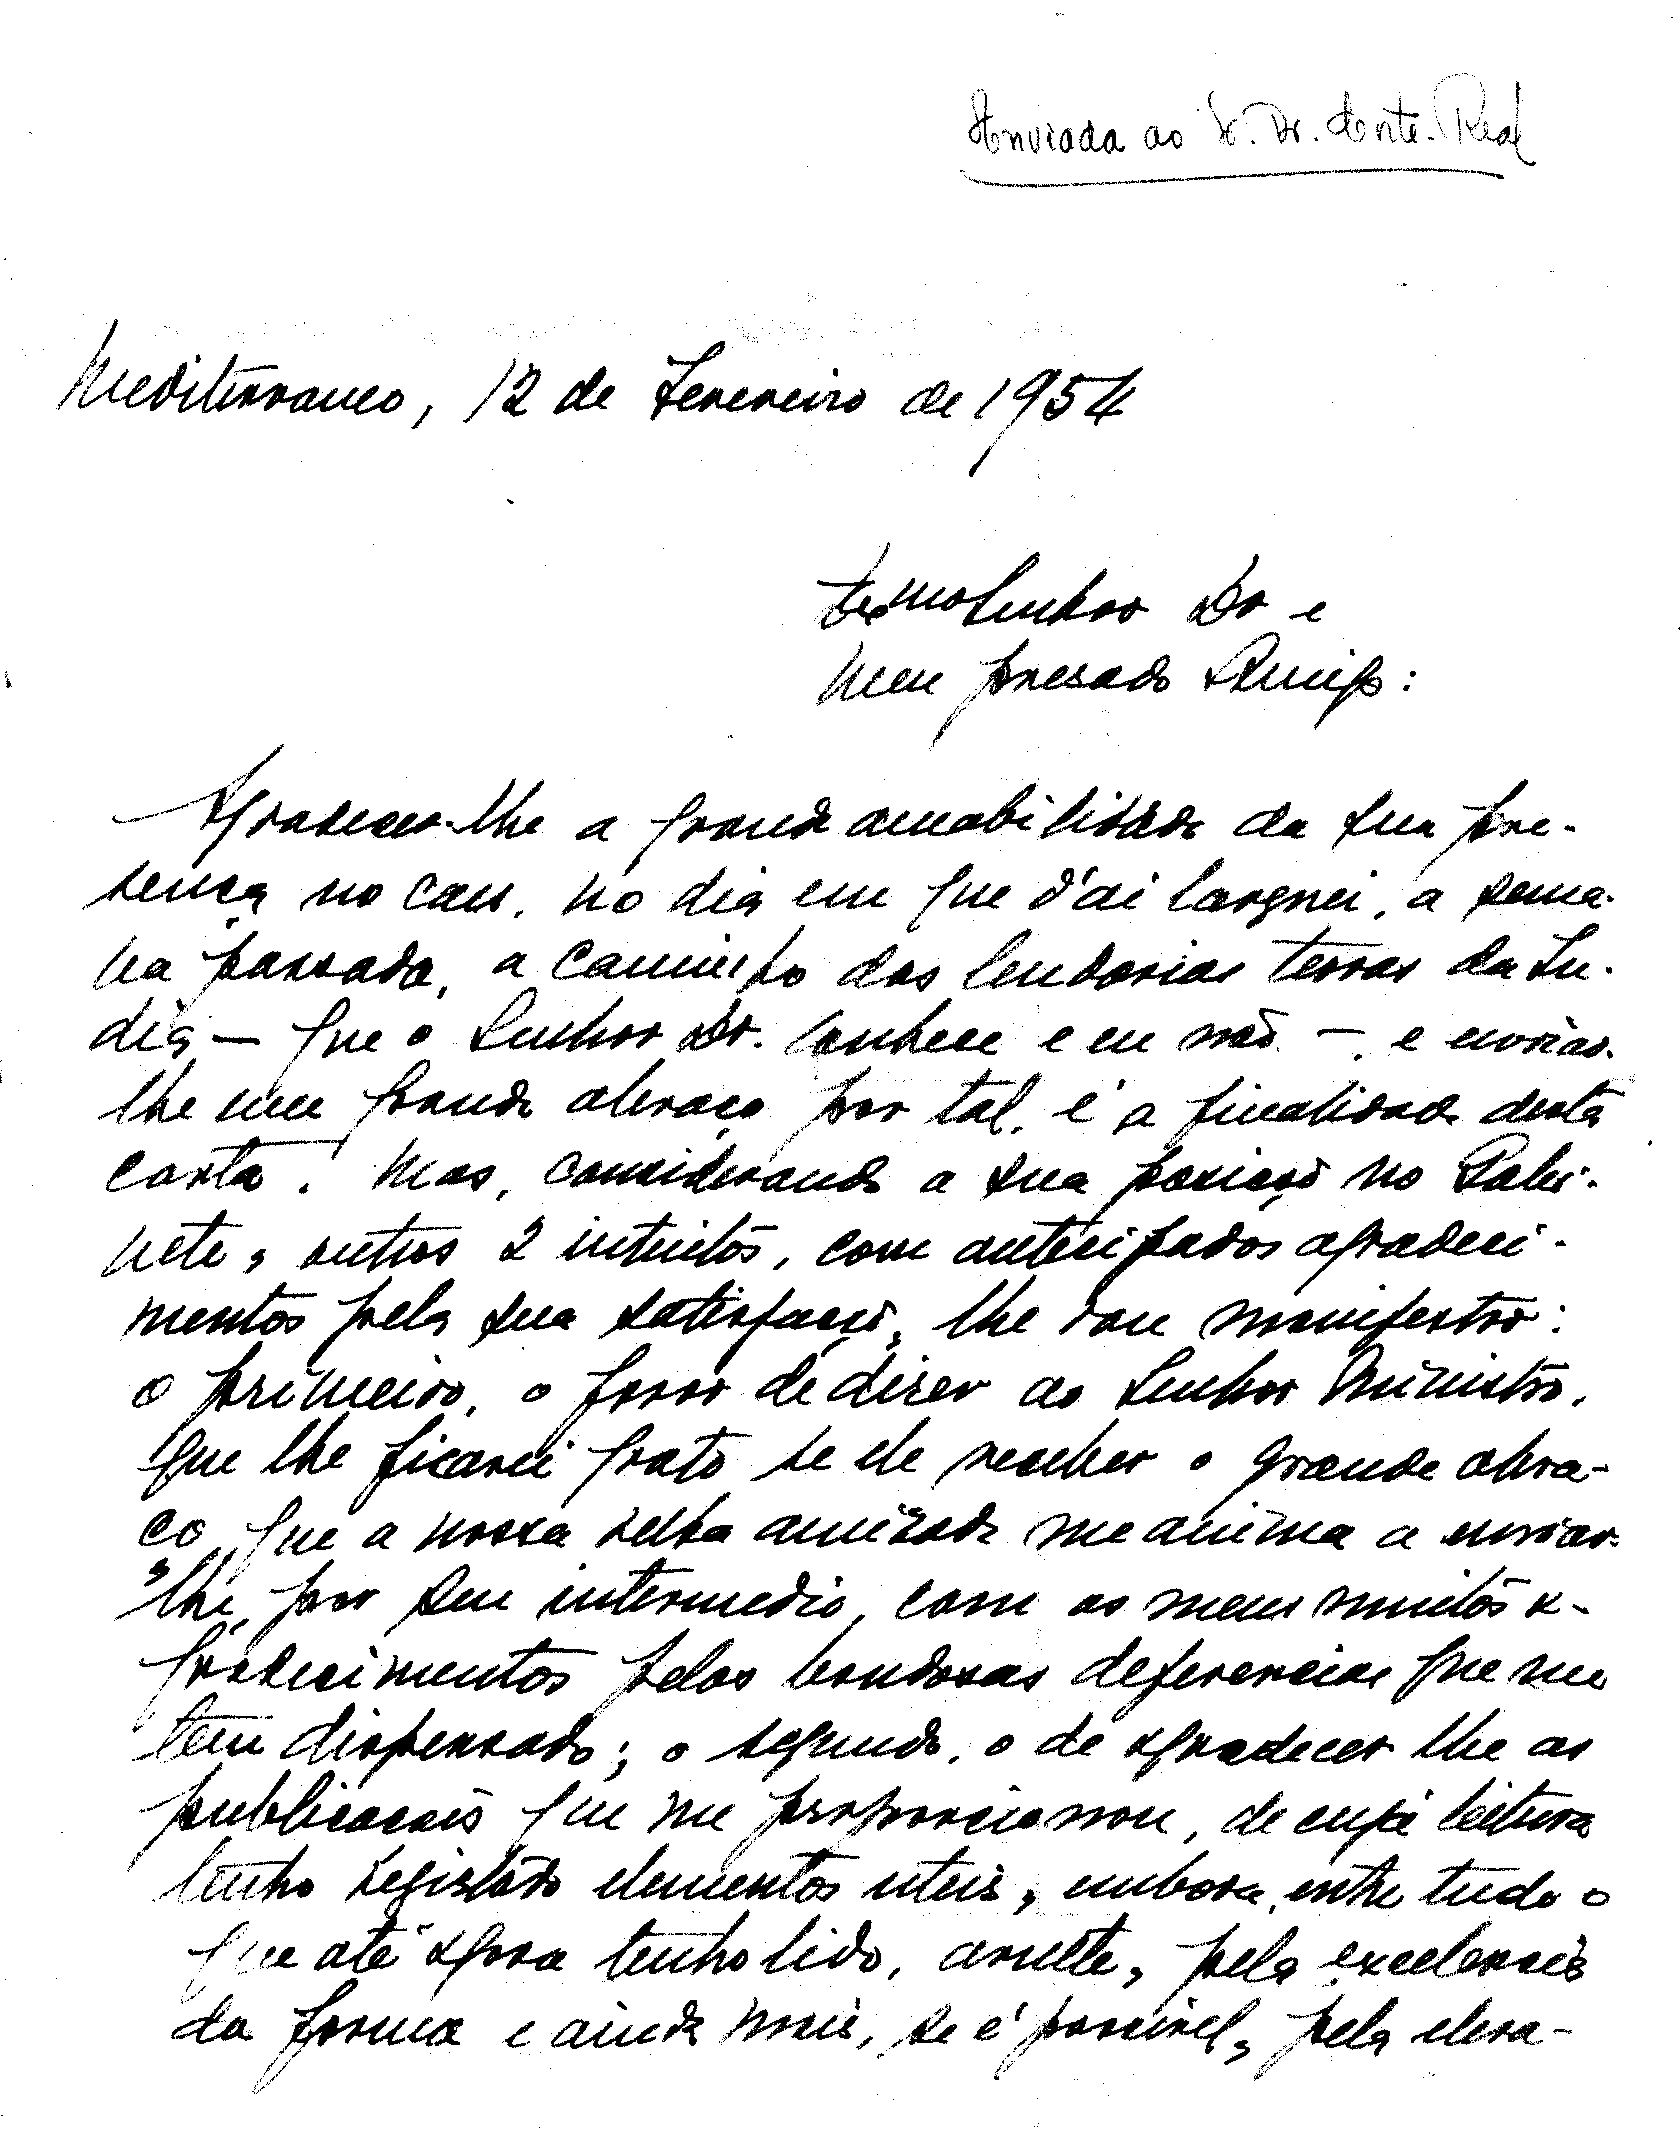 Enviada ao Sr. Dr. Corte-Real
Mediterraneo, 12 de Fevereiro de 1954
Exmo Senhor Dr e
Meu presado Amigo:
Agradecer-lhe a grande amabilidade da sua pre-
sença no caes, no dia em que d'ai larguei, a sema-
na passada, a caminho das lendarias terras da In-
dia — que o Senhor Dr. conhece e eu não —, e enviar-
lhe um grande abraço por tal, é a finalidade desta
carta. Mas, considerando a sua posição no Gabi-
nete, outros 2 intuitos, com antecipados agradeci-
mentos pela sua satisfação, lhe vou manifestar:
o primeiro, o favor de dizer ao Senhor Ministro,
que lhe ficarei grato se ele receber o grande abra-
ço que a nossa velha amizade me anima a enviar-
lhe, por seu intermedio, com os meus muitos a-
gradecimentos pelas bondosas deferencias que me
tem dispensado; o segundo, o de agradecer lhe as
publicações que me proporcionou, de cuja leitura
tenho registado elementos uteis, embora, entre tudo o
que até agora tenho lido, avulte, pela excelencia
da forma e ainda mais, se é possivel, pela eleva-